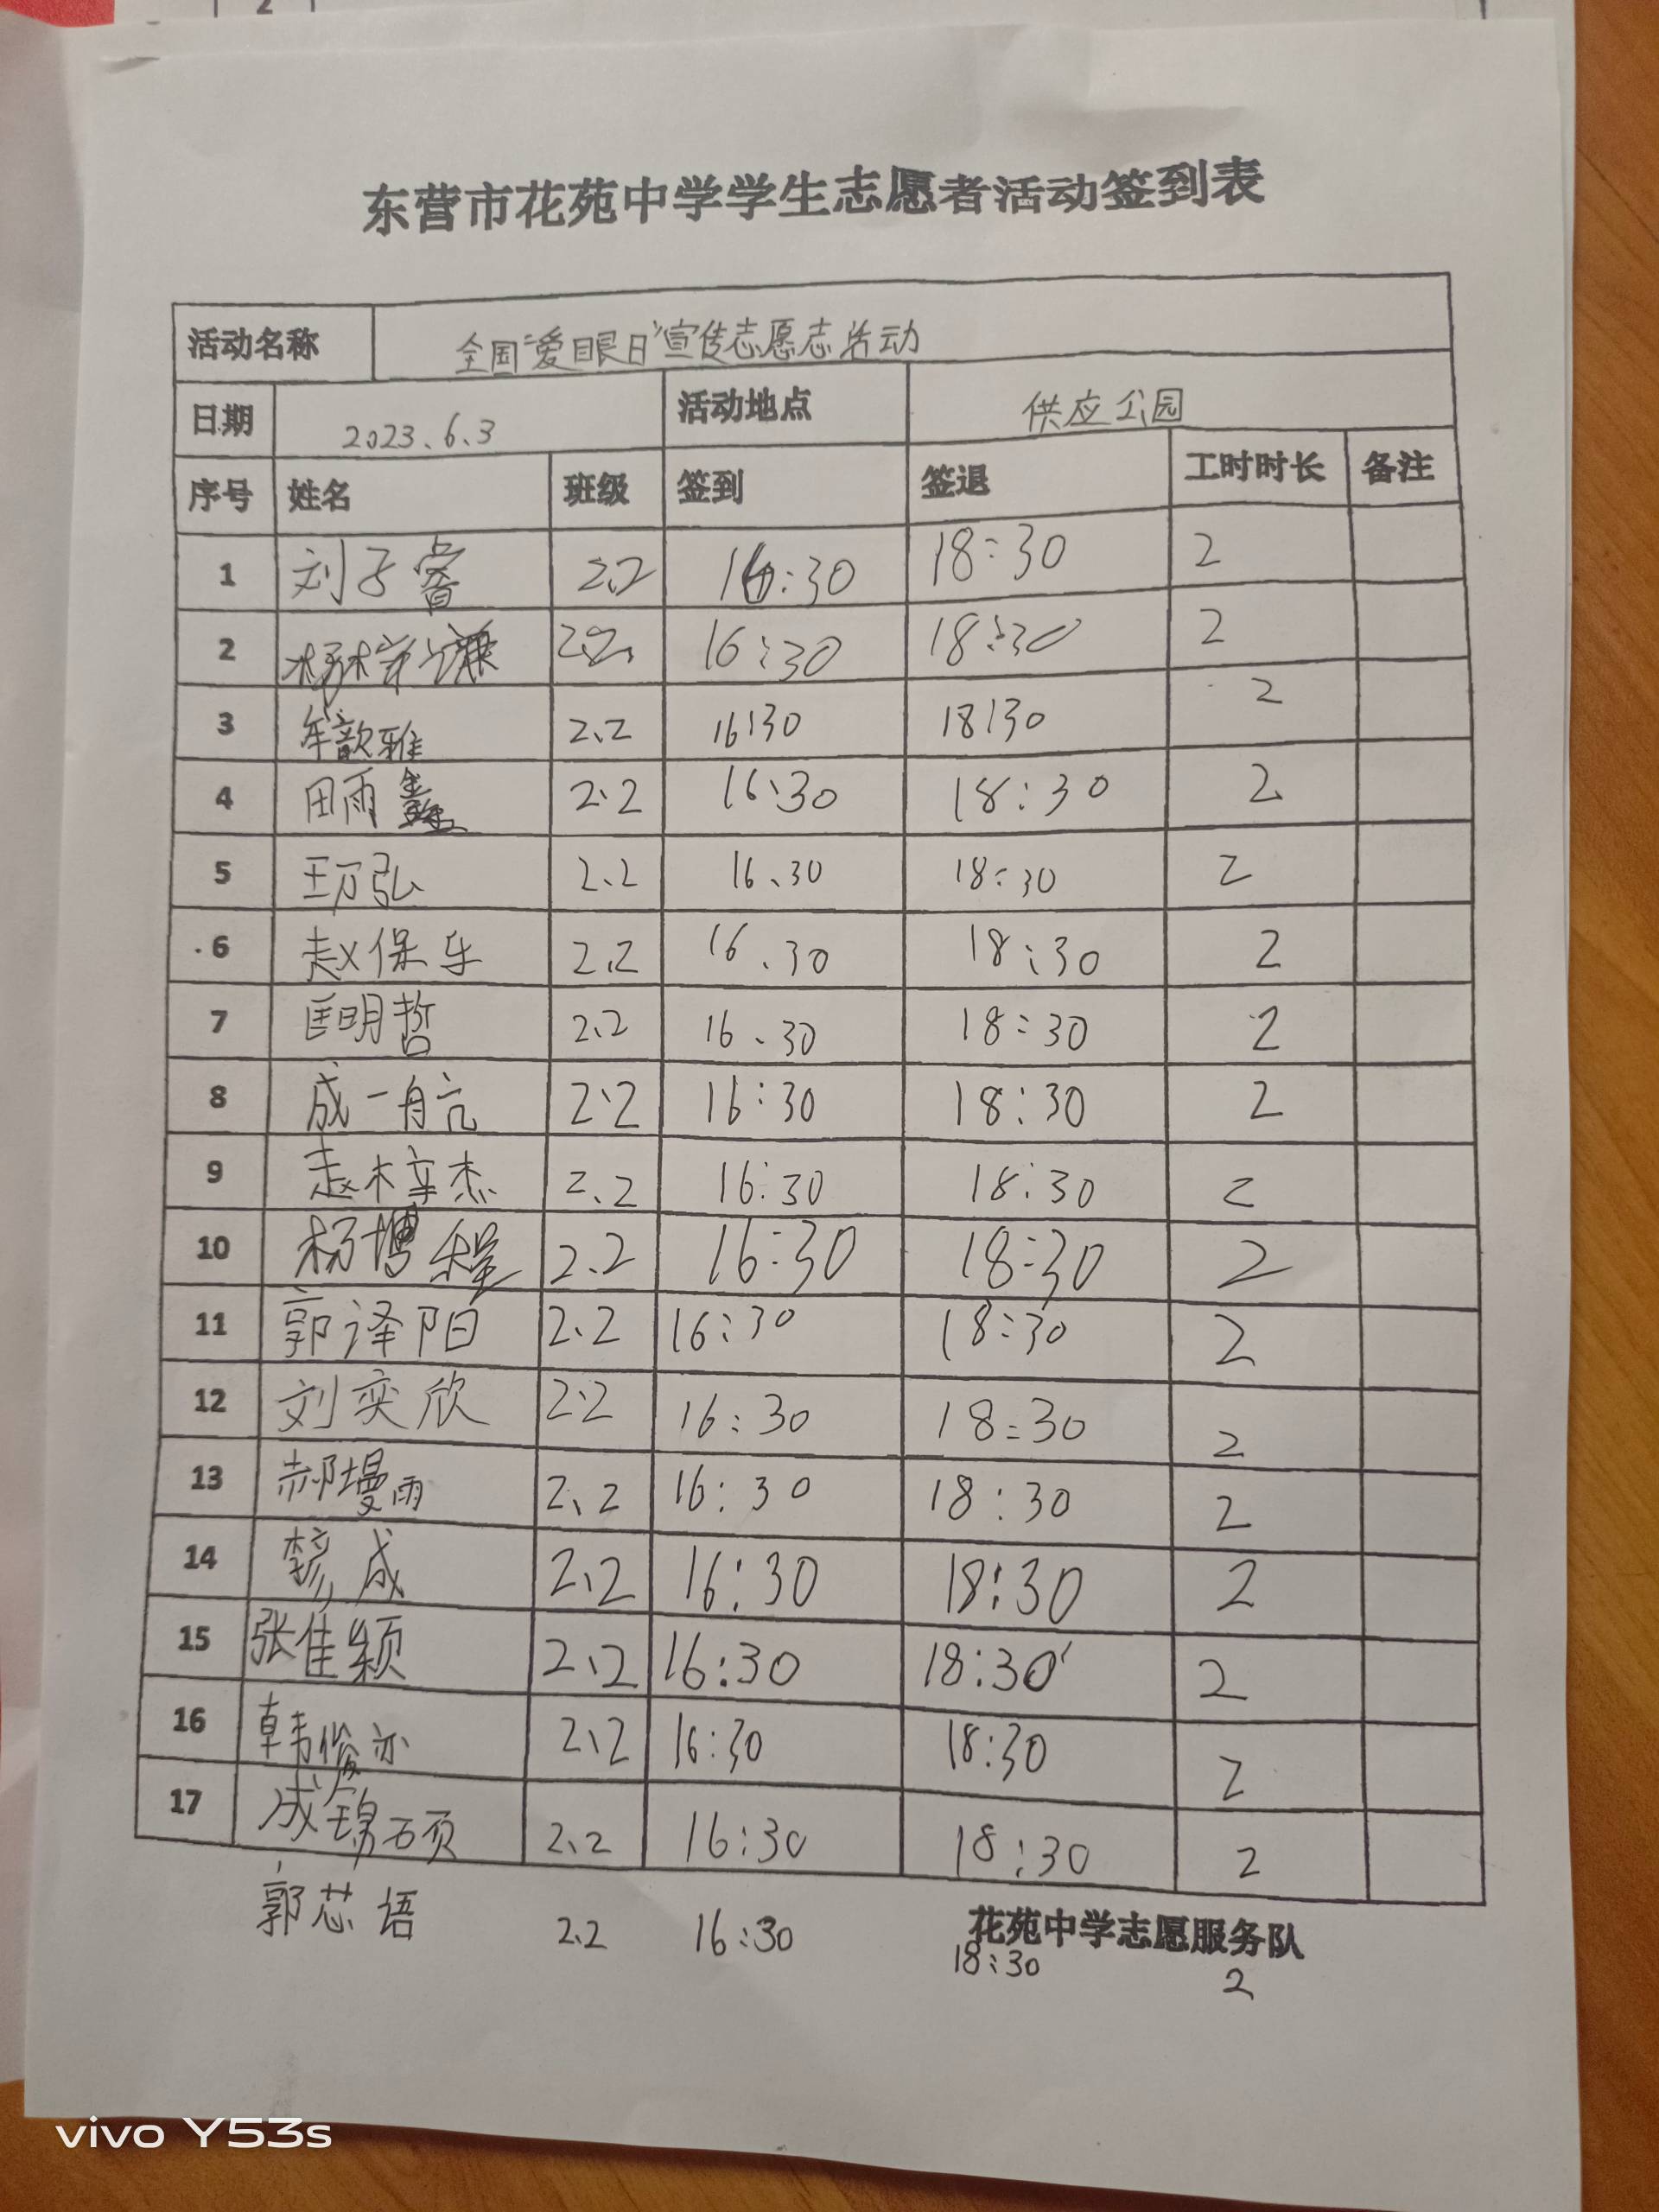 2
东营市花苑中学学生志愿者活动签到表
活动名称 全国“爱眼日”宣传志愿志活动
日期 2023.6.3 活动地点 供应公园
序号 姓名 班级 签到 签退 工时时长 备注
1 刘子睿 2.2 16:30 18:30 2
2 2.2 16:30 18:30 2
3 牟歆雅 2.2 16:30 18:30 2
4 田雨鑫 2.2 16:30 18:30 2
5 王万弘 2.2 16.30 18:30 2
6 赵保乐 2.2 16.30 18:30 2
7 匡明哲 2.2 16.30 18:30 2
8 成一航 2.2 16:30 18:30 2
9 赵梓杰 2.2 16:30 18:30 2
10 杨博程 2.2 16:30 18:30 2
11 郭泽阳 2.2 16:30 18:30 2
12 刘奕欣 2.2 16:30 18:30 2
13 郝墁雨 2.2 16:30 18:30 2
14 2.2 16:30 18:30 2
15 张佳颖 2.2 16:30 18:30 2
16 韩俊亦 2.2 16:30 18:30 2
17 成锦硕 2.2 16:30 18:30 2
郭芯语 2.2 16:30 18:30 2
花苑中学志愿服务队
vivo Y53s